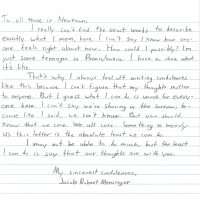 To all those in Newtown,
I really can't find the exact words to describe
exactly what I mean, here. I can't say I know how any-
one feels right about now. How could I possibly? I'm
just some teenager in Pennsylvania. I have no idea what
it's like.
That's why I always feel off writing condolences
like this because I can't figure that my thoughts matter
to anyone. But I guess what I can do is vouch for every-
one here. I can't say we're sharing in the sorrow, be-
cause like I said, we can't know. But you should
know that we care. We all care. Something so measly
as this letter is the absolute least we can do.
I may not be able to do much, but the least
I can do is say that our thoughts are with you.
My sincerest condolences,
Jacob Robert